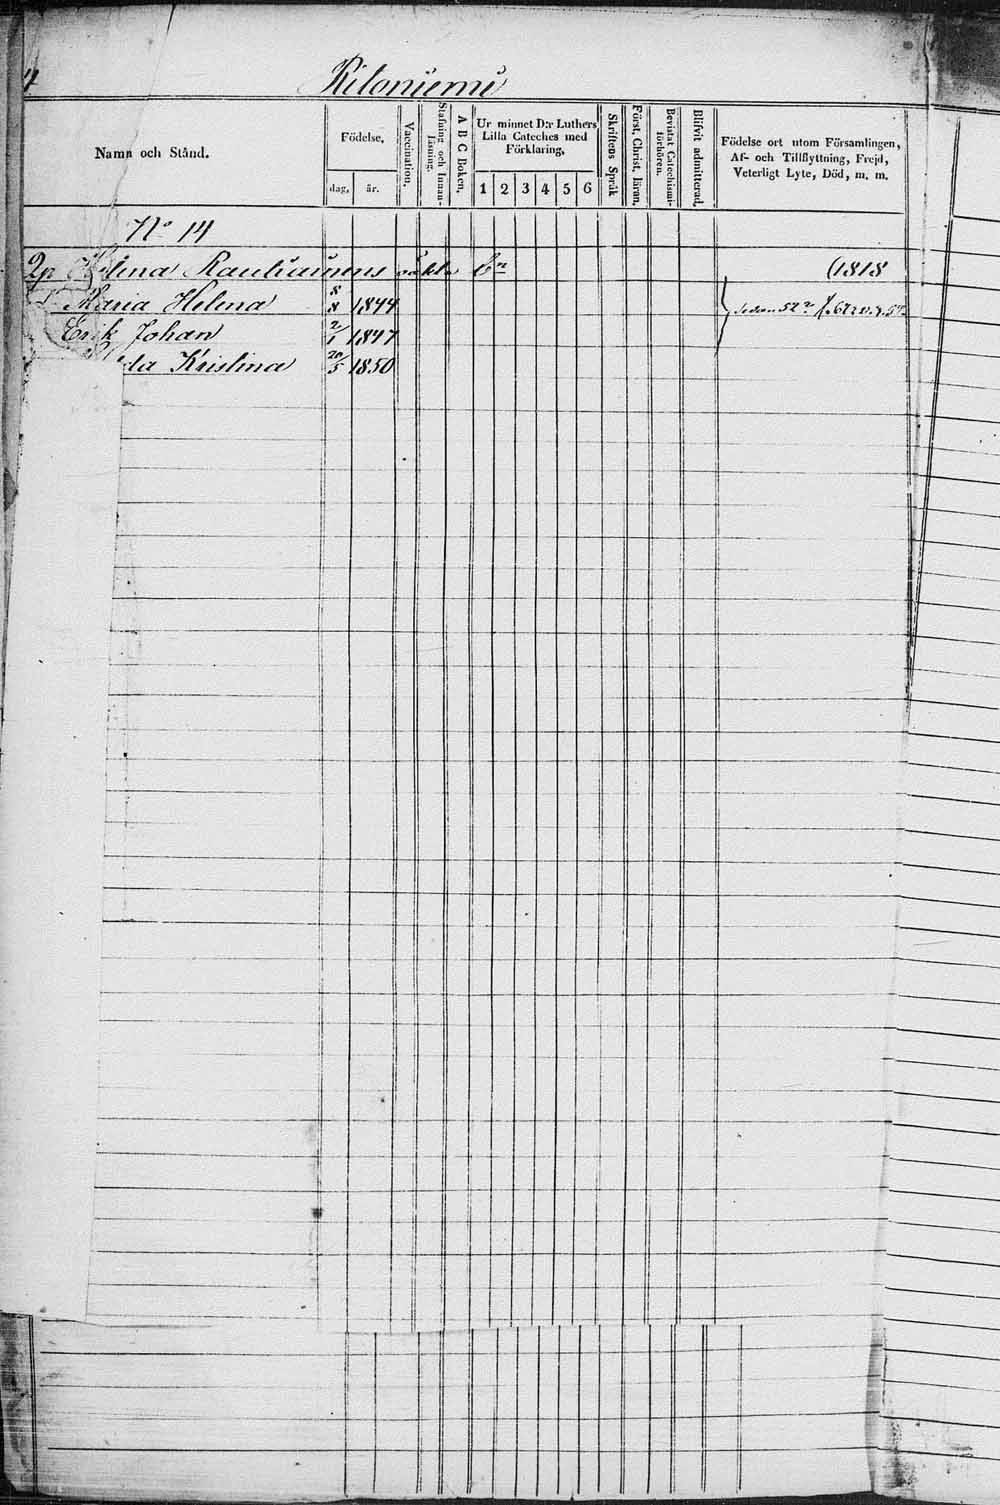 Kiloniemi
Namn och Stånd.
Födelse,
dag,
år.
Vaccination.
Stafning och Innan-
läsning.
A B C Boken.
Ur minnet D:r Luthers
Lilla Cateches med
Förklaring,
1 2 3 4 5 6
Skriftens Språk
Först. Christ. läran.
Bevistat Catechismi-
förhören.
Blifvit admitterad.
Födelse ort utom Församlingen,
Af- och Tillflyttning, Frejd,
Veterligt Lyte, Död, m. m.
No 14
Helena Rauhauinens (1818
Maria Helena 8/8 1844
Erik Johan 2/1 1847
da Kristina 20/5 1850